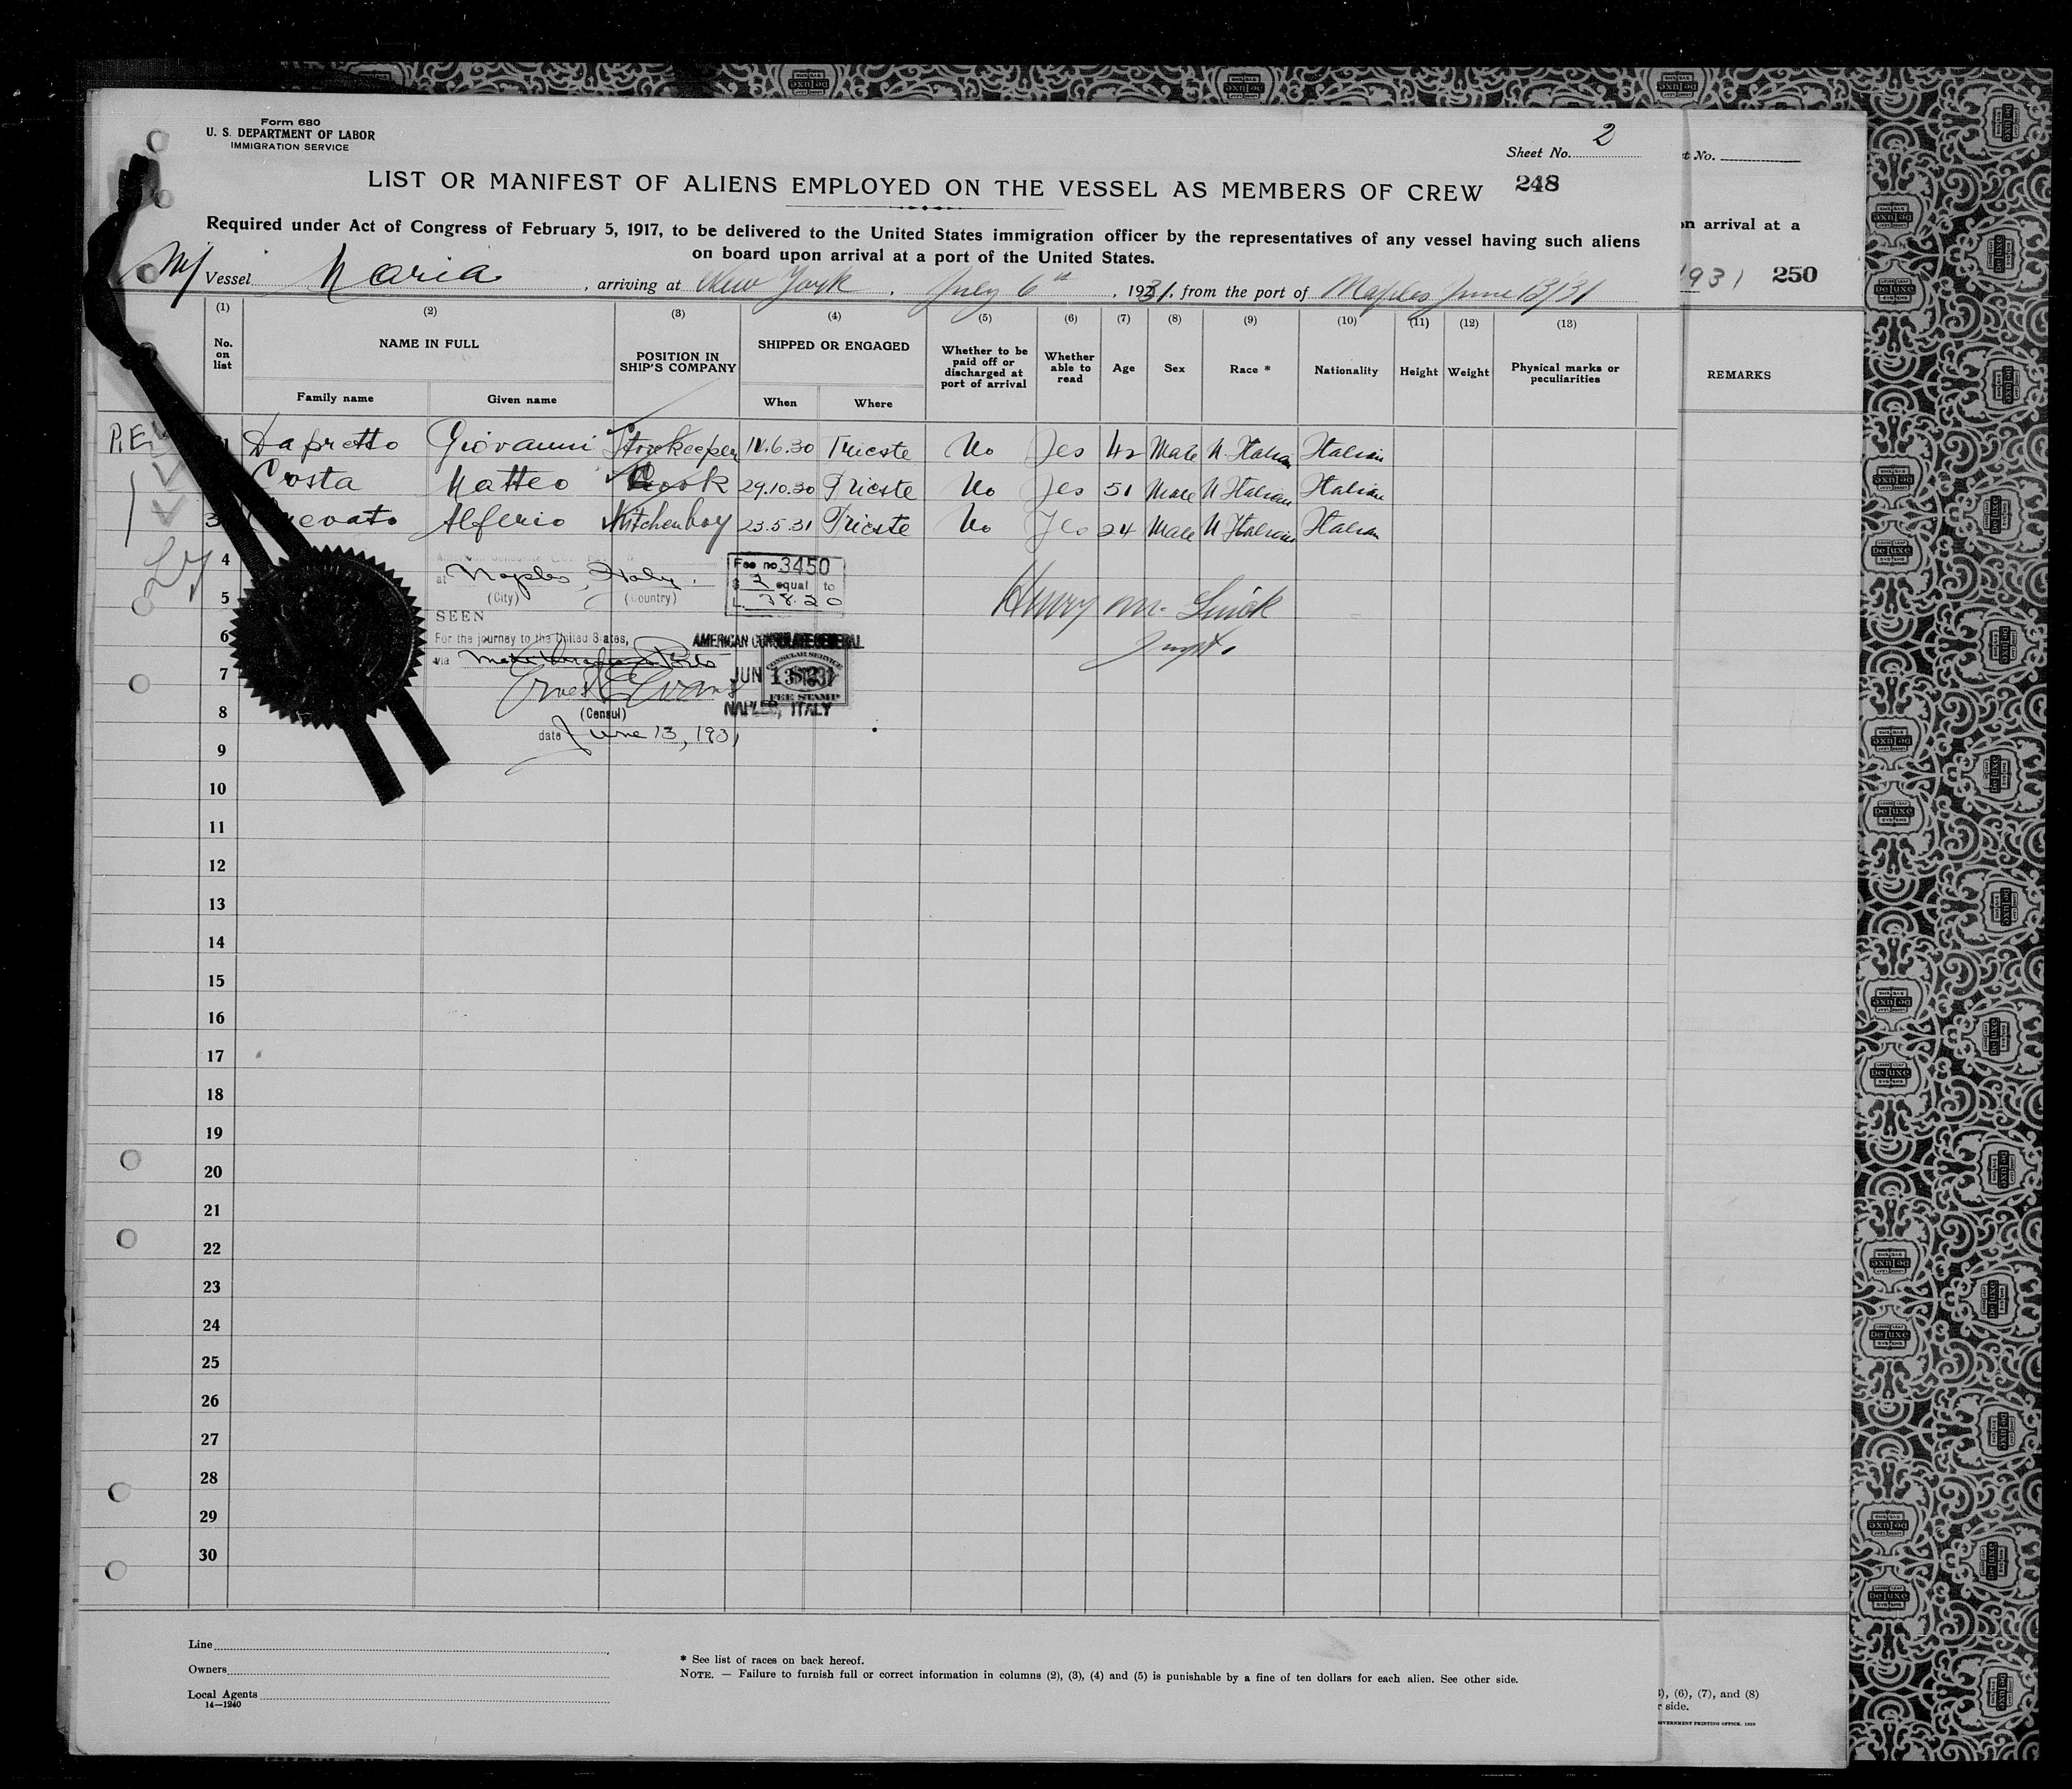 Form 680
U. S. DEPARTMENT OF LABOR
IMMIGRATION SERVICE
Sheet No. 2
t No.
LIST OR MANIFEST OF ALIENS EMPLOYED ON THE VESSEL AS MEMBERS OF CREW 248
Required under Act of Congress of February 5, 1917, to be delivered to the United States immigration officer by the representatives of any vessel having such aliens
on board upon arrival at a port of the United States.
on arrival at a
M/ Vessel Maria, arriving at New York, July 6th, 1931, from the port of Naples June 13/31
1931 250
(1) (2) (3) (4) (5) (6) (7) (8) (9) (10) (11) (12) (13)
No. on list
NAME IN FULL
Family name
Given name
POSITION IN SHIP'S COMPANY
SHIPPED OR ENGAGED
When
Where
Whether to be paid off or discharged at port of arrival
Whether able to read
Age
Sex
Race *
Nationality
Height
Weight
Physical marks or peculiarities
REMARKS
P.E. 1 Dapretto Giovanni Storekeeper 11.6.30 Trieste No Yes 42 Male N. Italian Italian
Costa Matteo Cook 29.10.30 Trieste No Yes 51 Male N Italian Italian
3 Alferio Kitchenboy 23.5.31 Trieste No Yes 24 Male N Italian Italian
4
at Naples, Italy.
(City) (Country)
Fee no 3450
$ 2 equal to
L. 38.20
5
SEEN
Henry M.
6
For the journey to the United States,
AMERICAN CONSULATE GENERAL
via Ports
CONSULAR SERVICE
7
JUN 13 1931
Ernest E Evans
FEE STAMP
8
(Consul)
NAPLES, ITALY
date June 13, 1931
9
10
11
12
13
14
15
16
17
18
19
20
21
22
23
24
25
26
27
28
29
30
Line
Owners
Local Agents
14—1240
* See list of races on back hereof.
NOTE. — Failure to furnish full or correct information in columns (2), (3), (4) and (5) is punishable by a fine of ten dollars for each alien. See other side.
), (6), (7), and (8)
r side.
GOVERNMENT PRINTING OFFICE. 1918
DeLuxe